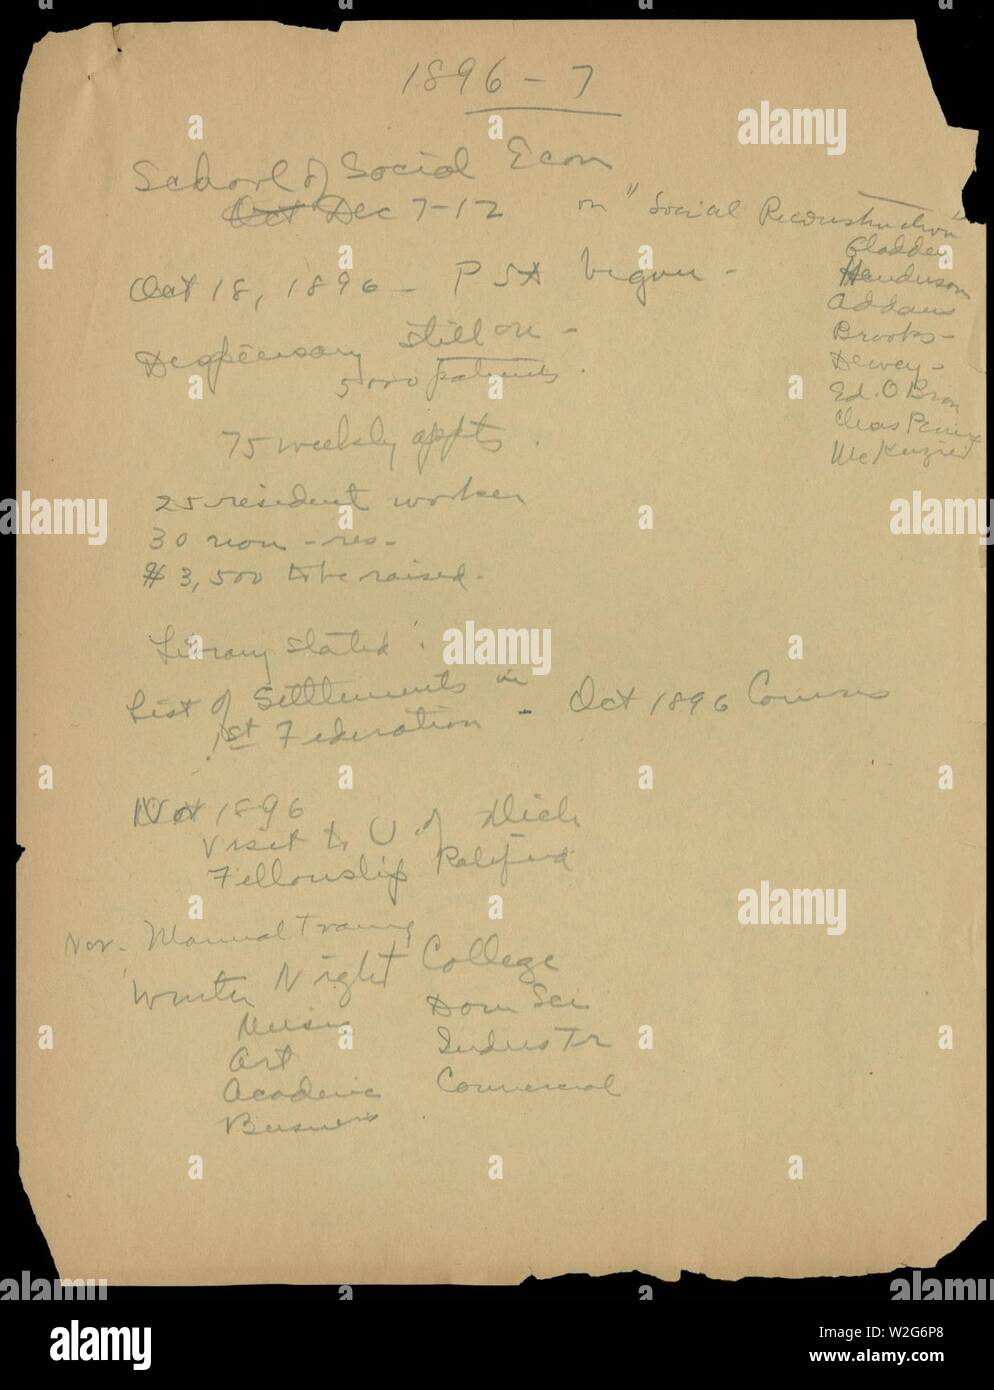 1896 - 7
School of Social Econ
Oct Dec 7-12 on "Social Reconstruction"
Gladden
Henderson
Addams
Brooks -
Dewey -
Ed. O Brown
Chas
McKenzie
Oct 18, 1896 - P S A began -
Dispensary still on -
5000 patients.
75 weekly appts.
25 resident worker
30 non - res -
$3,500 to be raised -
Library stated
List of Settlements in
1st Federation - Oct 1896 Commons
1896
Visit to U of Mich
Fellowship
Nov. Manual Traing
Winter Night College
Music Dom Sci
Art Indus Tr
Academic Commercial
Business
alamy
alamy
alamy
alamy
alamy
alamy
alamy
Image ID: W2G6P8
www.alamy.com